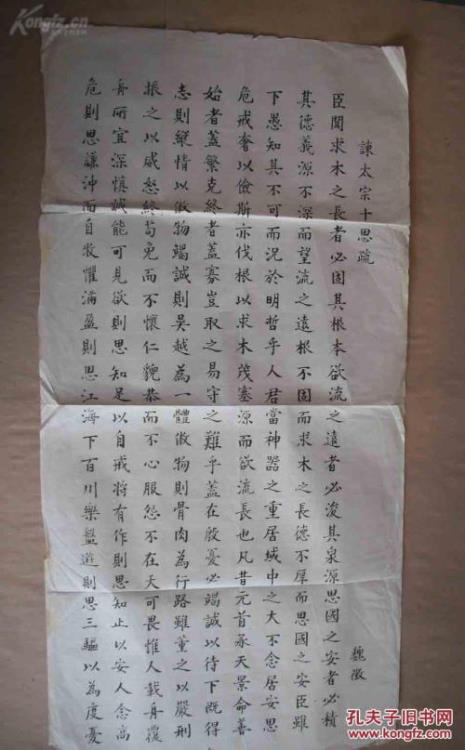 Kongfz.cn
諫太宗十思疏 魏徵
臣聞求木之長者必固其根本欲流之遠者必浚其泉源思國之安者必積
其德義源不深而望流之遠根不固而求木之長德不厚而思國之安臣雖
下愚知其不可而況於明哲乎人君當神器之重居域中之大不念居安思
危戒奢以儉斯亦伐根以求木茂塞源而欲流長也凡昔元首承天景命善
始者蓋繁克終者蓋寡豈取之易守之難乎蓋在殷憂必竭誠以待下既得
志則縱情以傲物竭誠則吳越為一體傲物則骨肉為行路雖董之以嚴刑
振之以威怒終苟免而不懷仁貌恭而不心服怨不在天可畏惟人載舟覆
舟所宜深慎誠能可見欲則思知足以自戒將有作則思知止以安人念高
危則思謙沖而自牧懼滿盈則思江海下百川樂盤遊則思三驅以為度憂
孔夫子旧书网